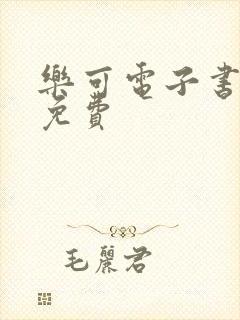 樂可電子書
免費
毛麗君